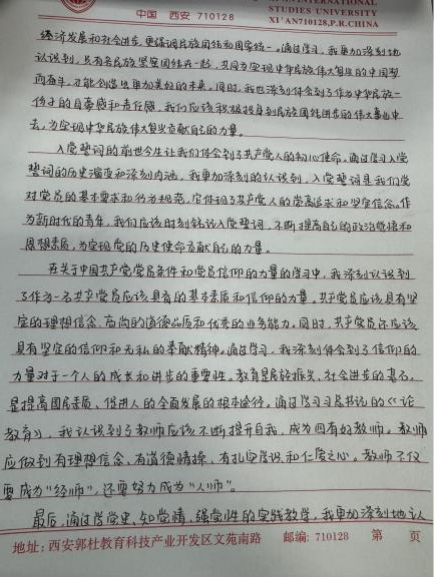 INTERNATIONAL
中国 西安 710128
STUDIES UNIVERSITY
XI'AN710128,P.R.CHINA
经济发展和社会进步,更强调民族团结和国家统一。通过学习,我更加深刻地
认识到,只有各民族紧紧团结在一起,共同为实现中华民族伟大复兴的中国梦
而奋斗,才能创造出更加美好的未来。同时,我也深刻体会到了作为中华民族一
份子的自豪感和责任感,我们应该积极投身到民族团结进步的伟大事业中
去,为实现中华民族伟大复兴贡献自己的力量。
入党誓词的前世今生让我们体会到了共产党人的初心使命。通过学习入党
誓词的历史演变和深刻内涵,我更加深刻的认识到,入党誓词是我们党
对党员的基本要求和行为规范,它体现了共产党人的崇高追求和坚定信念。作
为新时代的青年,我们应该时刻铭记入党誓词,不断提高自己的政治觉悟和
思想素质,为实现党的历史使命贡献自己的力量。
在关于中国共产党党员条件和党员信仰的力量的学习中,我深刻认识到
了作为一名共产党员应该具有的基本素质和信仰的力量。共产党员应该具有坚
定的理想信念、高尚的道德品质和优秀的业务能力。同时,共产党员还应该
具有坚定的信仰和无私的奉献精神。通过学习,我深刻体会到了信仰的
力量对于一个人的成长和进步的重要性。教育是民族振兴、社会进步的基石,
是提高国民素质、促进人的全面发展的根本途径,通过学习习总书记的《论
教育》,我认识到了教师应该不断提升自我,成为四有好教师。教师
应做到有理想信念,有道德情操,有扎实学识和仁爱之心。教师不仅
要成为“经师”,还要努力成为“人师”。
最后,通过学党史、知党情、强党性的实践教学,我更加深刻地认
地址:西安郭杜教育科技产业开发区文苑南路 邮编:710128 第 页